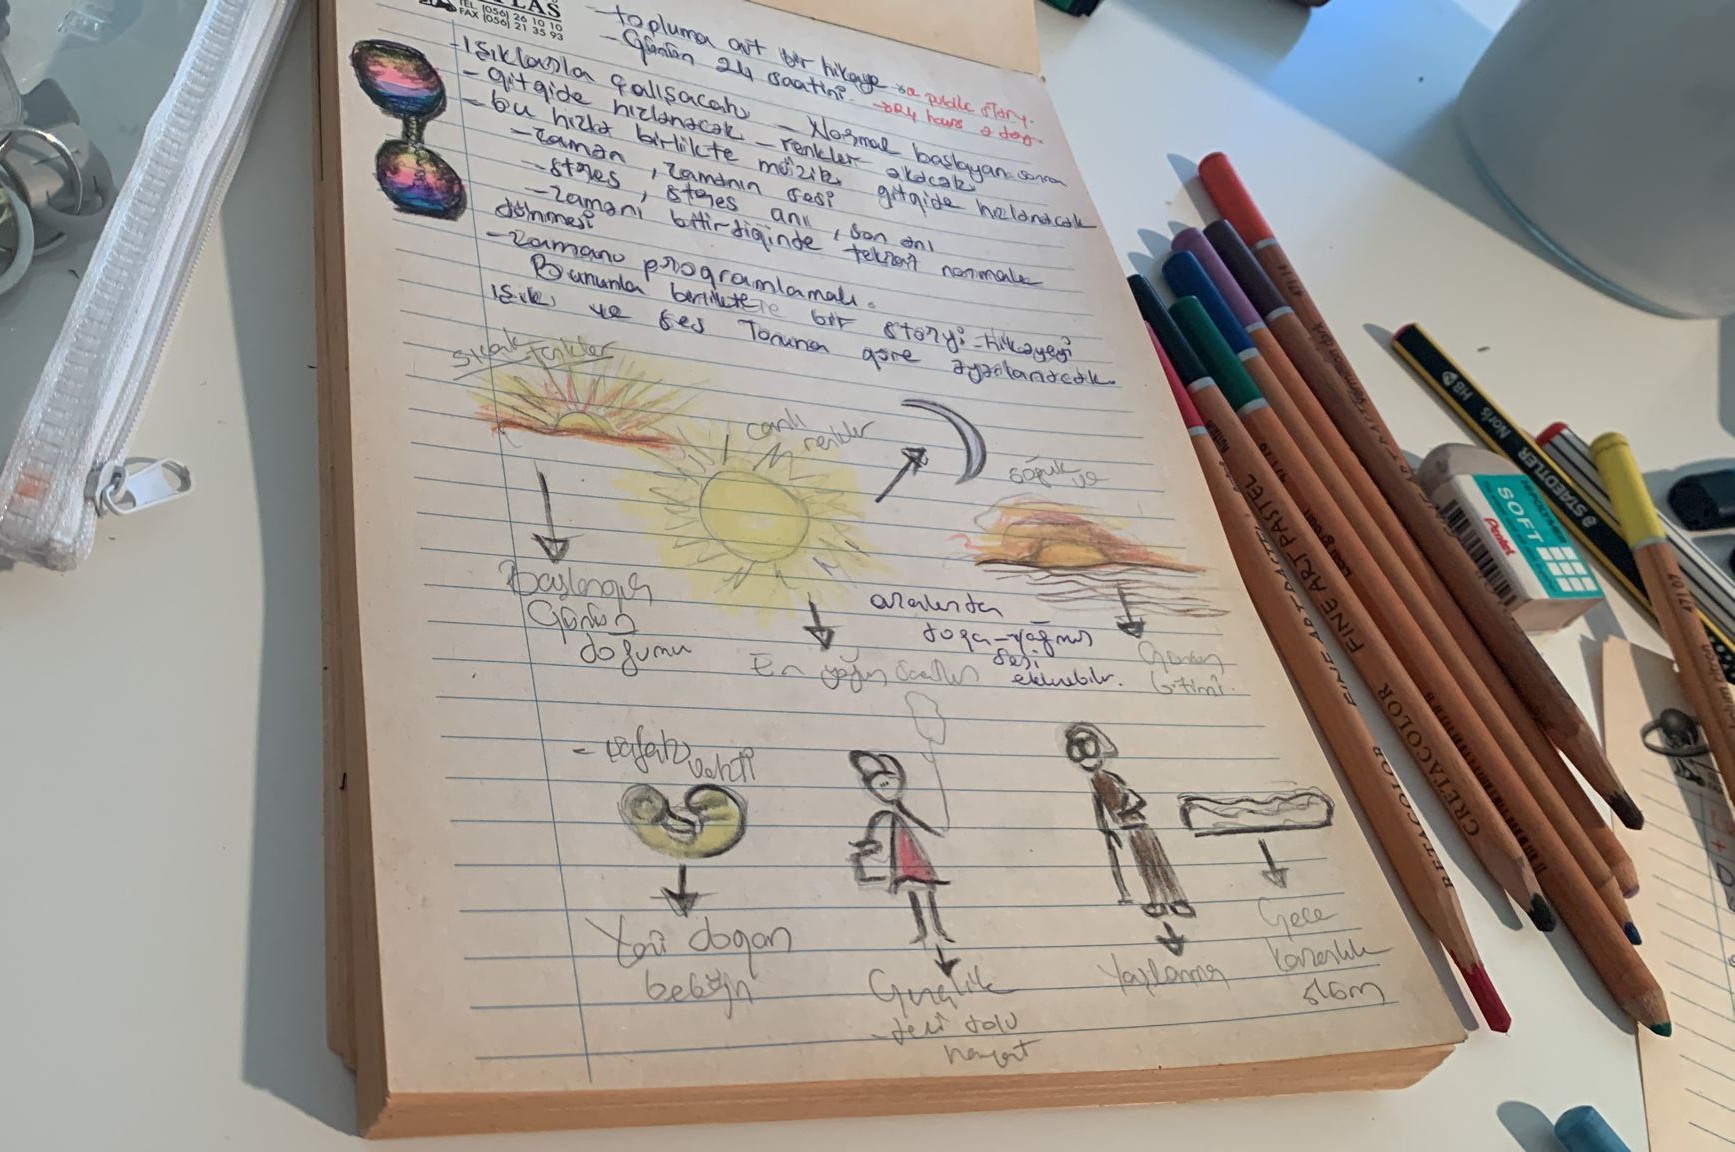 LAS
TEL (056) 26 10 10
FAX (056) 21 35 93
- topluma ait bir hikaye → a public story.
- Günün 24 saatini. → 24 hours a day.
- Işıklarla çalışacak
- gitgide hızlanacak - Normal başlayan sonra
- bu hızla birlikte müzik - renkler akacak
- zaman, zamanın sesi gitgide hızlanacak
- stres, stres anı, son anı
- zamanı bitirdiğinde tekrar normale
dönmesi
- zamanı programlamalı.
Bununla birlikte bir story: hikayeyi
ışık ve ses tonuna göre ayarlanacak.
sıcak renkler
canlı
renkler
soğuk ve
Başlangıç
Günün
doğumu
En yoğun saatler
aralarda
doğa - yağmur
sesi
eklenebilir.
Günün
bitimi.
- şafak vakti
Yeni doğan
bebeğin
Gençlik
- deli dolu
hayat
Yaşlanma
Gece
karanlık
ölüm
FINE ART PASTEL
FINE ART PASTEL
CRETACOLOR
RETACOLOR
STAEDTLER
Noris HB
SOFT
Pentel